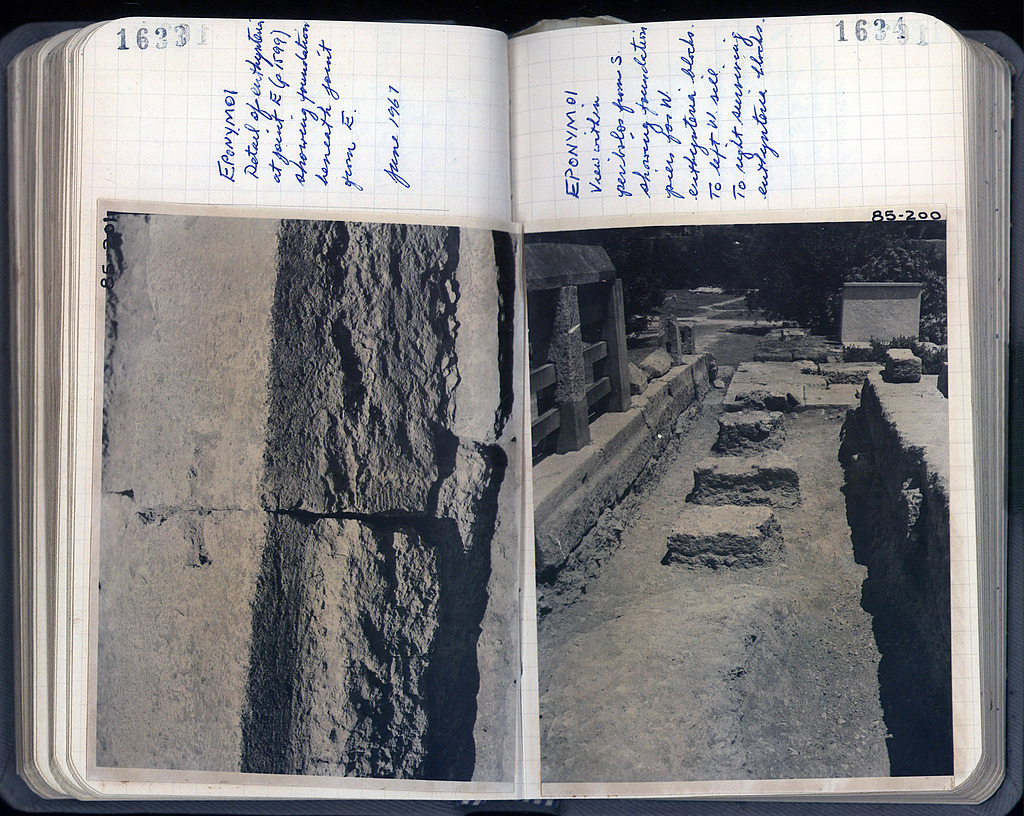 1633
EPONYMOI
Detail of euthynteria
at joint E (p 1599)
showing foundation
beneath joint
from E.
June 1967
85-201
1634
EPONYMOI
View within
peribolos from S
showing foundation
pier for W
euthynteria blocks.
To left W sill
To right surviving
euthynteria blocks.
85-200